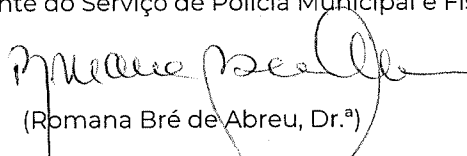 nte do Serviço de Polícia Municipal e Fis
(Romana Bré de Abreu, Dr.ª)